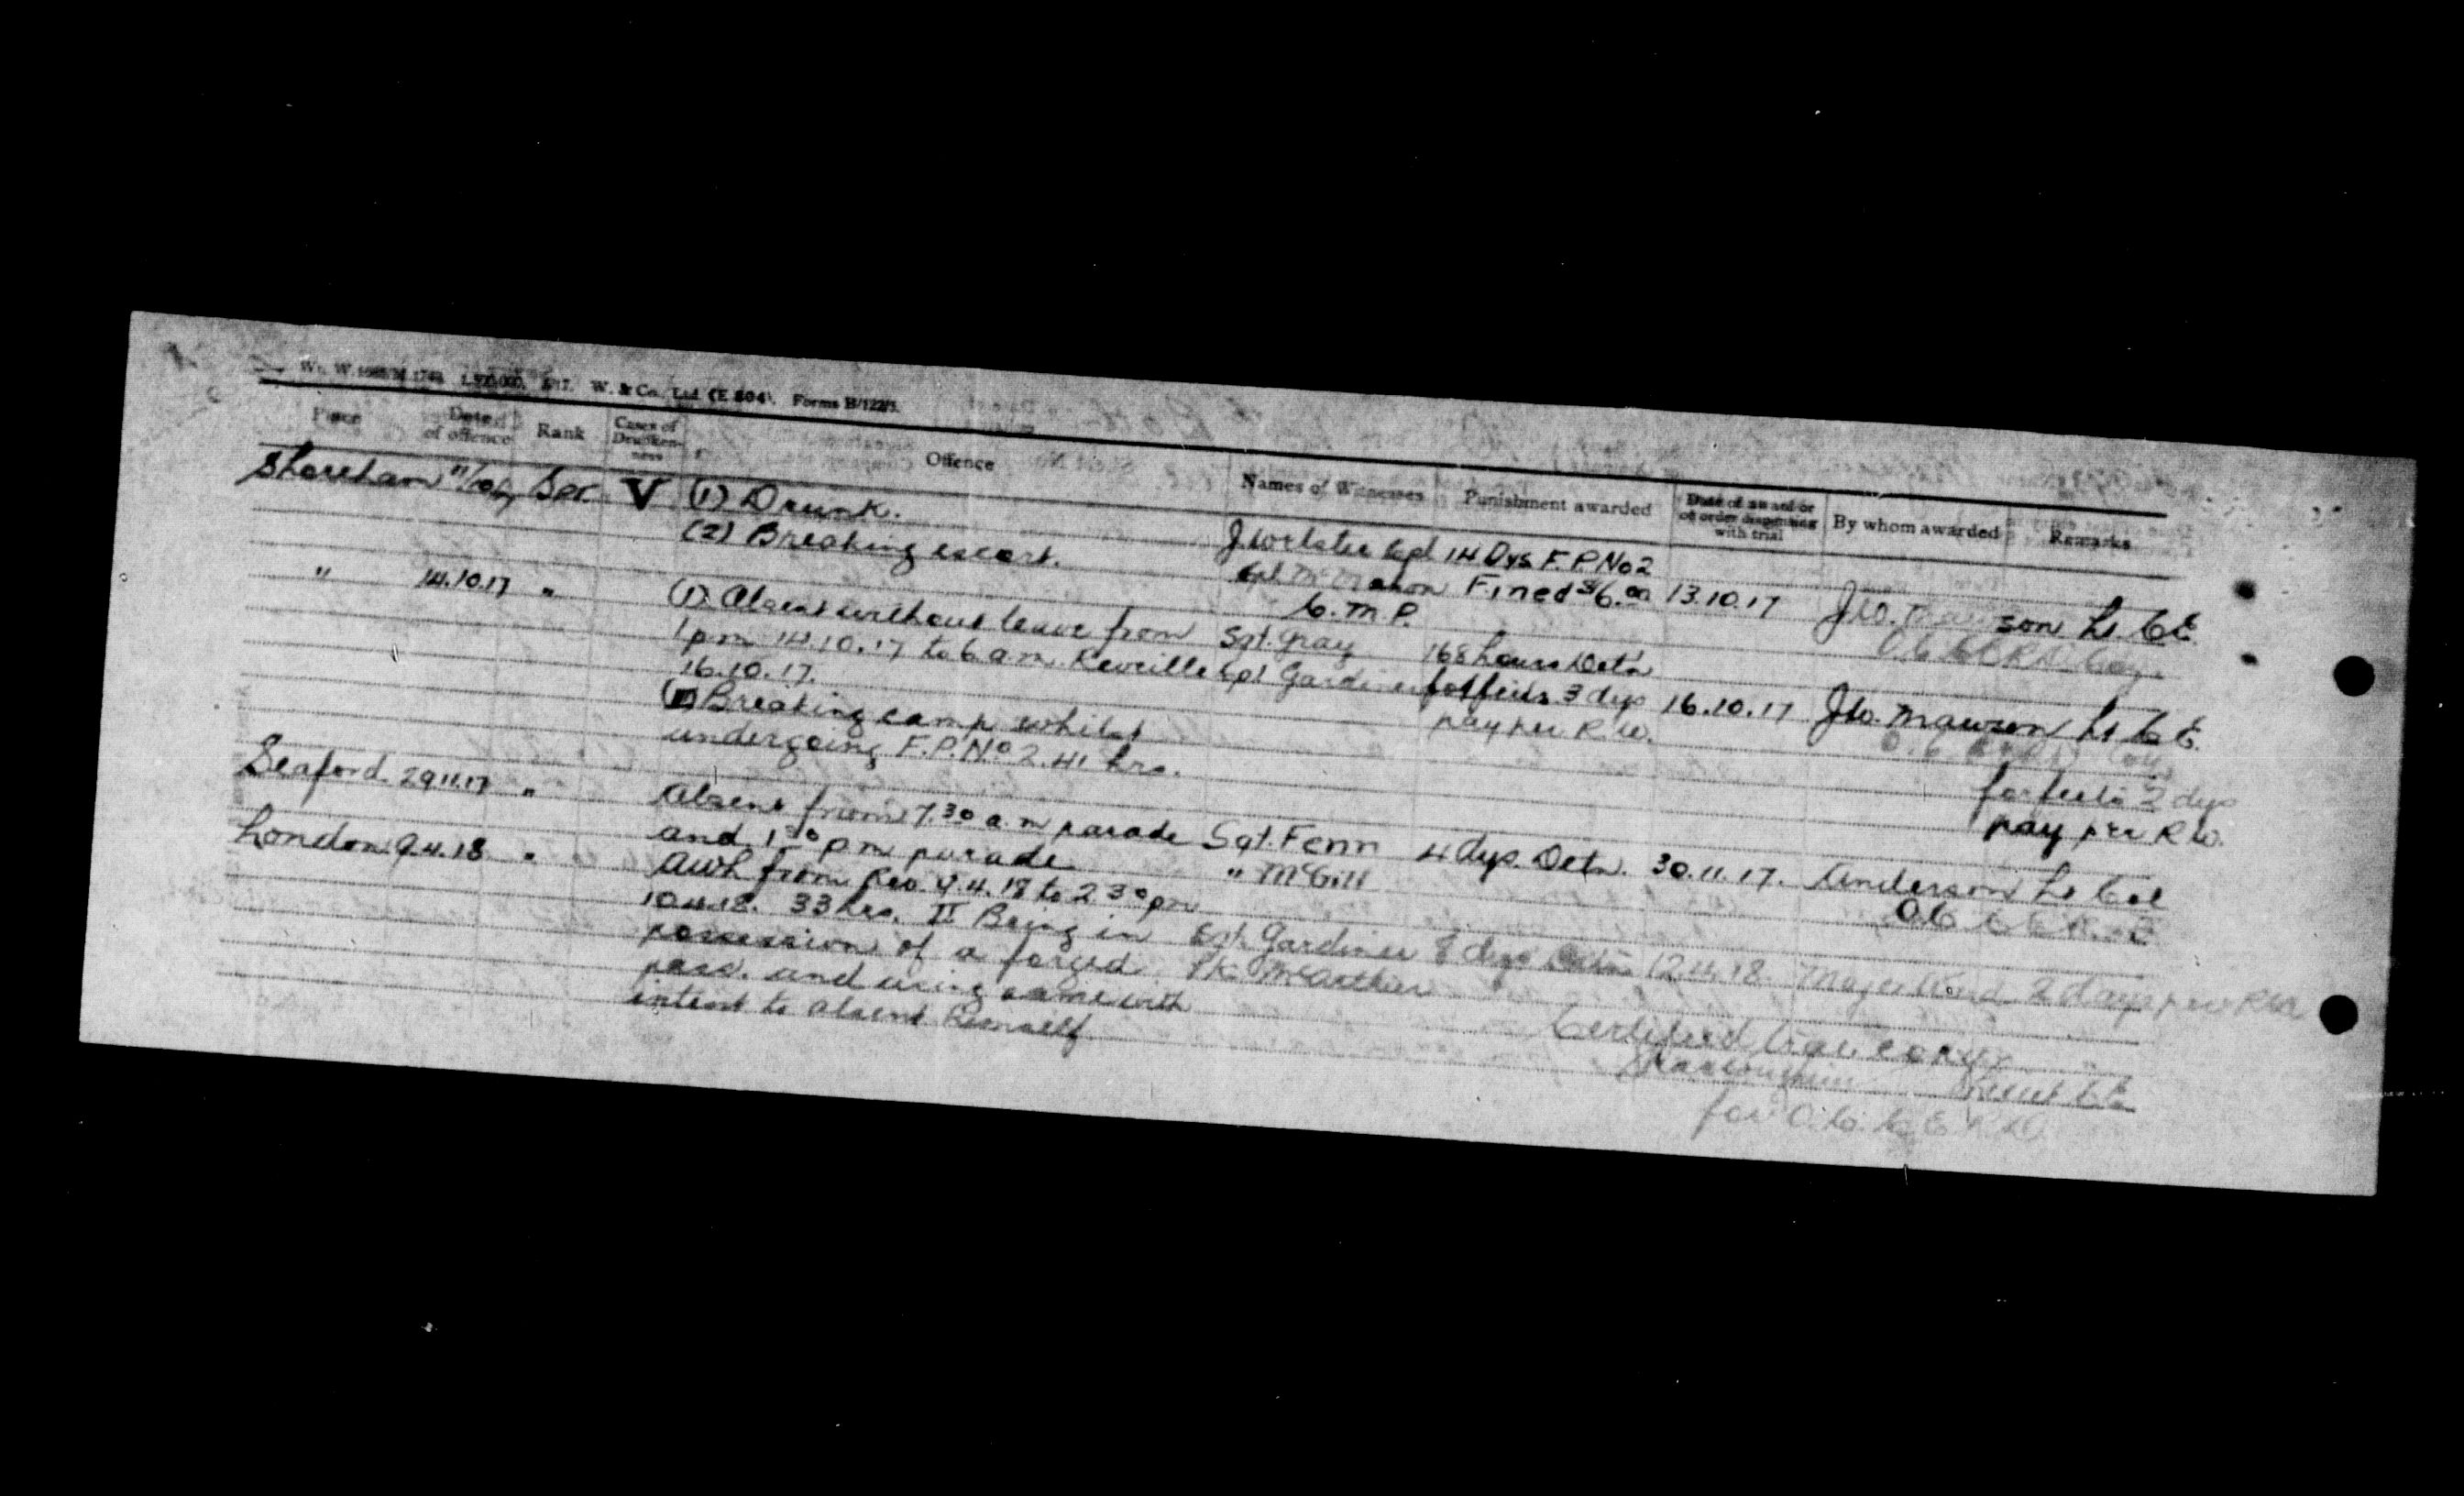 W. & Co. Ltd. (E 804). Forms B/122/1.
Place Date of offence Rank Cases of Drunkenness Offence Names of Witnesses Punishment awarded Date of award or of order dispensing with trial By whom awarded Remarks
Shoreham Spr. V (1) Drunk. J. Webster Cpl 14 Dys F.P. No 2
(2) Breaking escort. Cpl Fined $6.00 13.10.17 J.W. Mawson Lt. C.E.
C.M.P.
" 14.10.17 " (1) Absent without leave from Sgt. Gray 168 hours Detn
1 pm 14.10.17 to 6 a.m. Reveille Cpl Gardiner forfeits 3 dys 16.10.17 J.W. Mawson Lt C.E.
16.10.17. pay per R.W.
(II) Breaking camp whilst forfeits 2 dys
undergoing F.P. No 2. 41 hrs. pay per R.W.
Seaford 29.11.17 " Absent from 7.30 a.m parade Sgt. Fenn 4 dys. Detn. 30.11.17. Anderson Lt Col
and 1 30 pm parade " McGill O.C.
London 9.4.18 " AWL from Rev. 9.4.18 to 2 30 pm
10.4.18. 33 hrs. II Being in Sgt. Gardiner 8 dys Detn 12.4.18. Major 2 days per RW
possession of a forged McArthur
pass. and using same with
intent to absent himself.
Certified true copy
Lieut C.E.
for O.C. C.E.R.D.